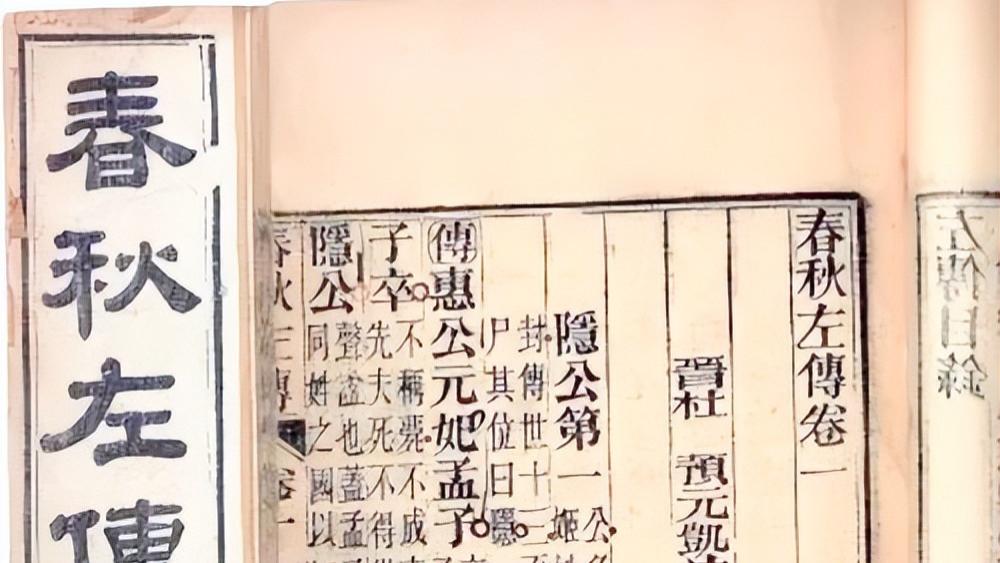 春秋左傳
左傳目錄
春秋左傳卷一
晉杜 預元凱
隱公第一 公
姬
封傳世十三
尸其位曰隱
傳惠公元妃孟子
子卒 不稱薨不成
先夫死不得
隱公 聲諡也蓋孟
同姓之國以